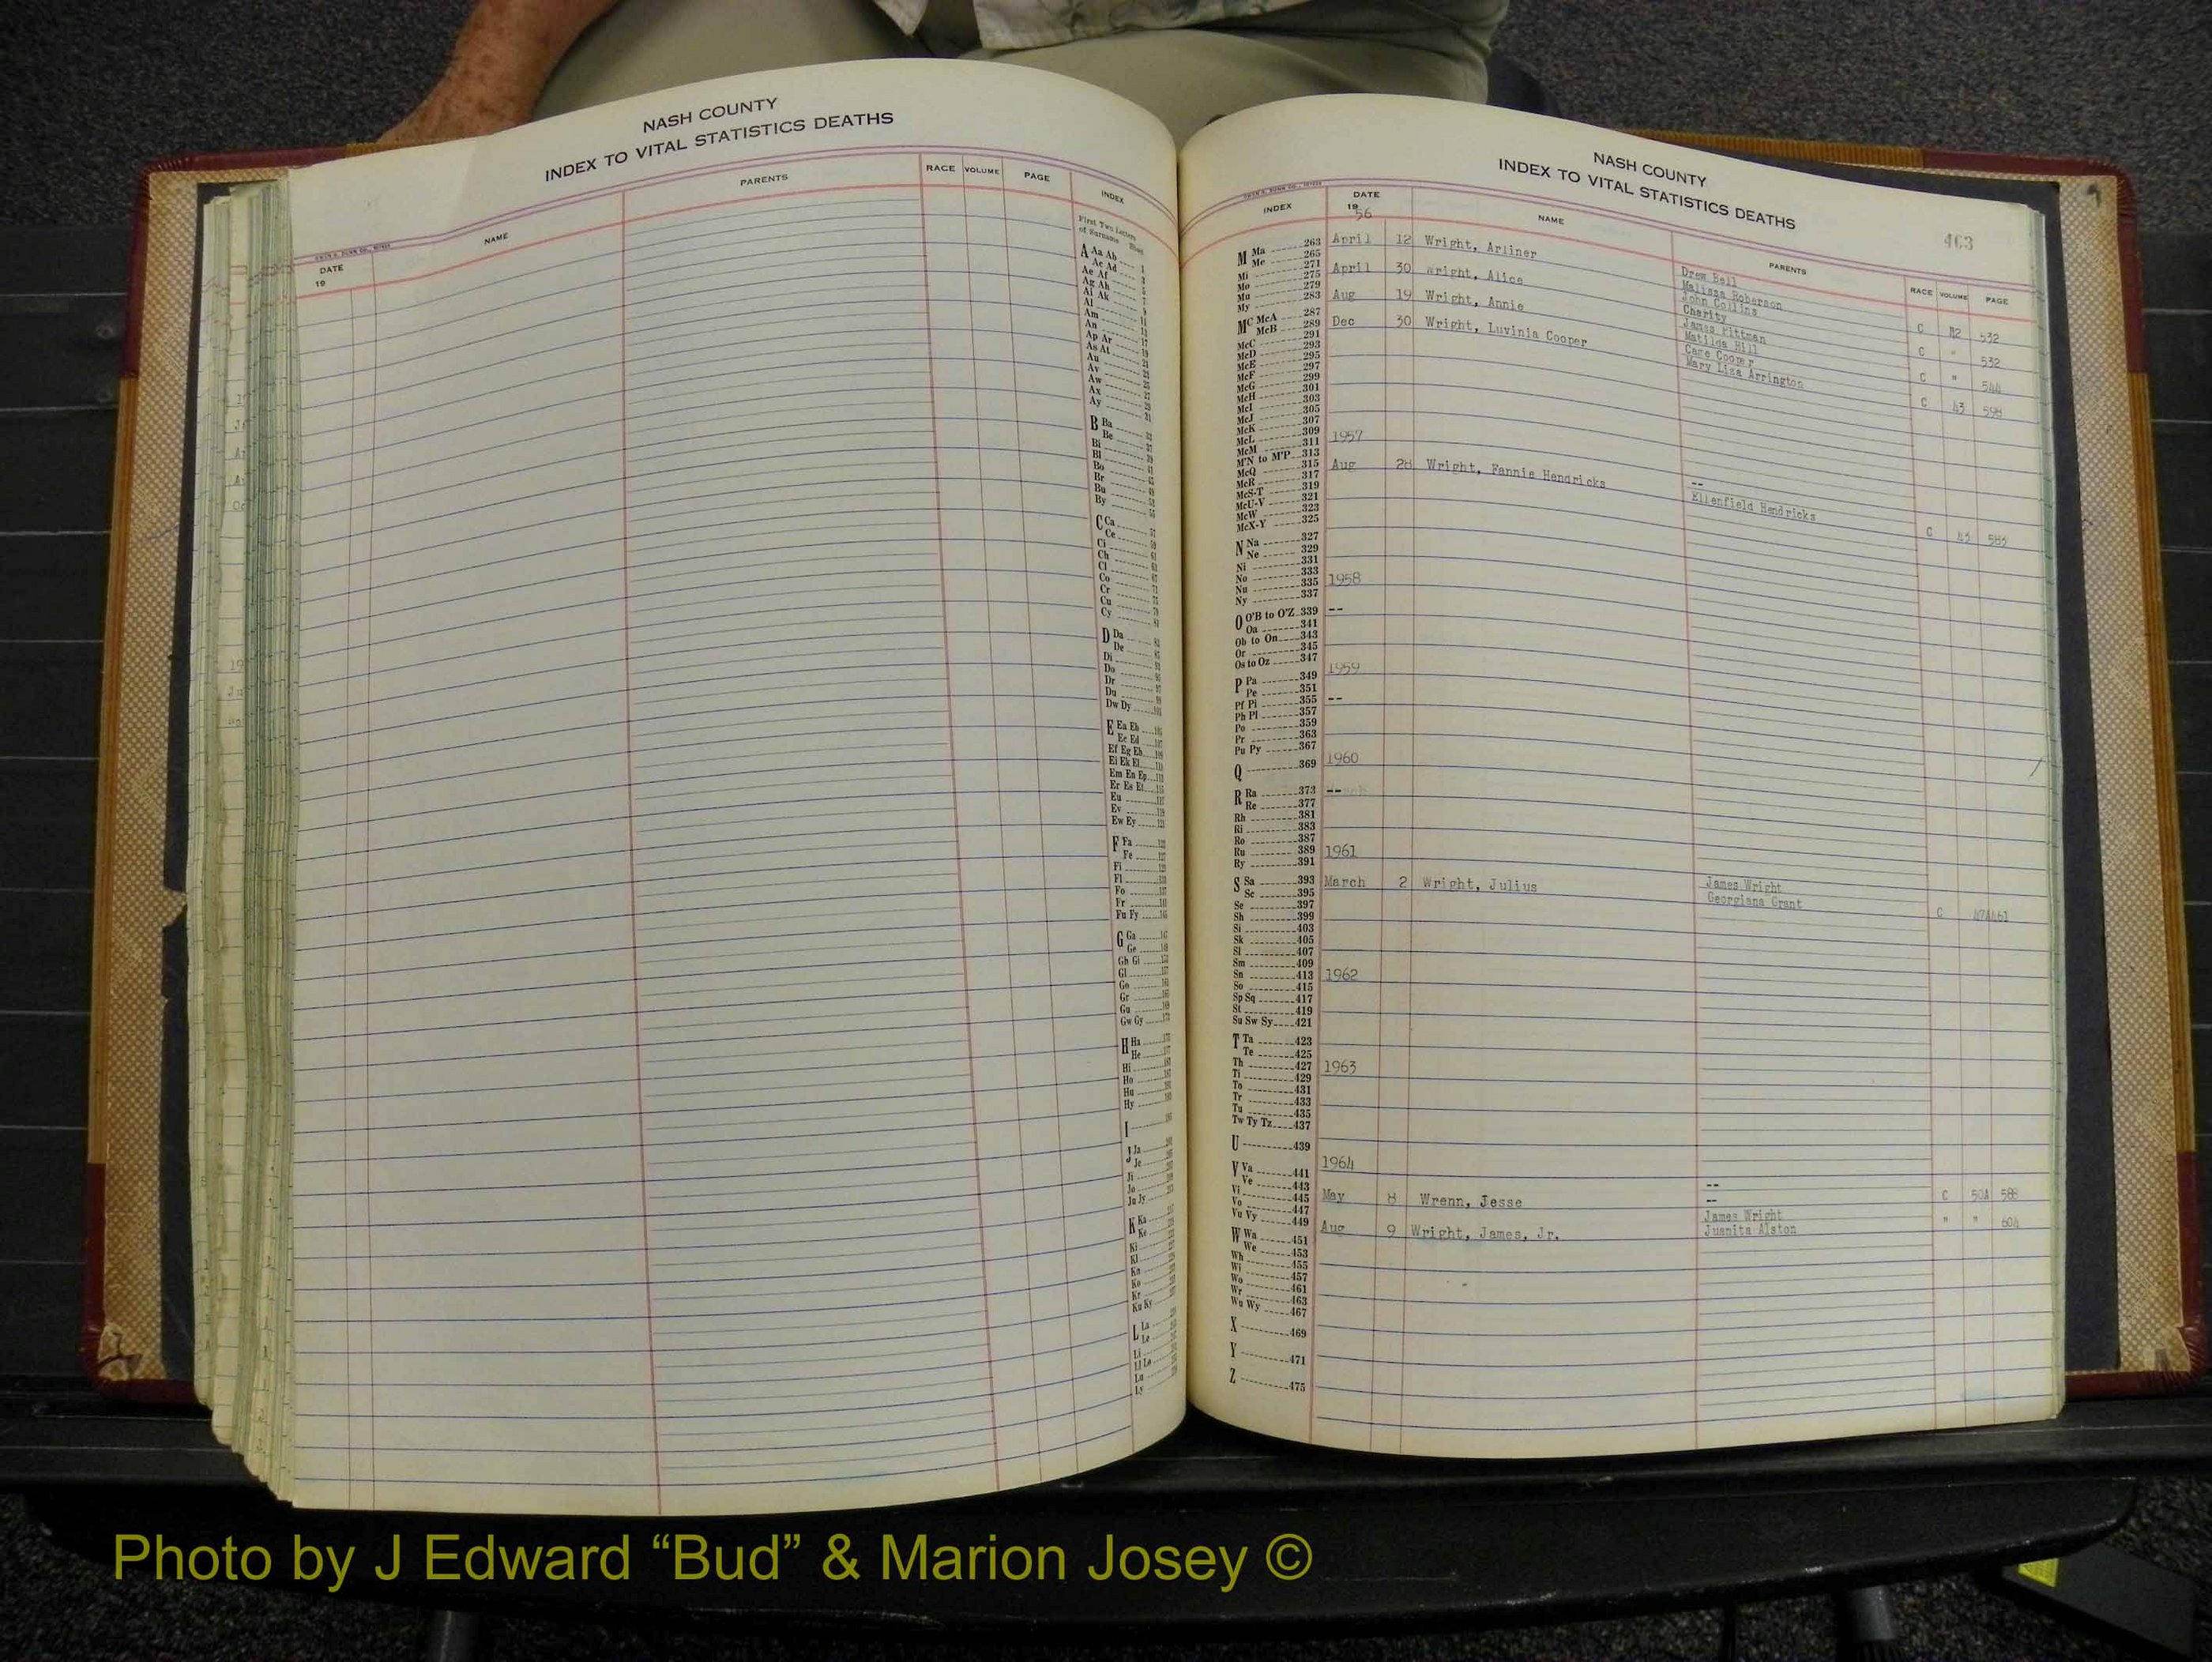 NASH COUNTY
INDEX TO VITAL STATISTICS DEATHS
DATE
19
NAME
PARENTS
RACE
VOLUME
PAGE
INDEX
First Two Letters
of Surname
A Aa Ab
Ac Ad
Ae Af
Ag Ah
Ai Ak
Al
Am
An
Ap Ar
As At
Au
Av
Aw
Ax
Ay
B Ba
Be
Bi
Bl
Bo
Br
Bu
By
C Ca
Ce
Ci
Ch
Cl
Co
Cr
Cu
Cy
D Da
De
Di
Do
Dr
Du
Dw Dy
E Ea Eb
Ec Ed
Ef Eg Eh
Ei Ek El
Em En Ep
Er Es Et
Eu
Ev
Ew Ey
F Fa
Fe
Fi
Fl
Fo
Fr
Fu Fy
G Ga
Ge
Gh Gi
Gl
Go
Gr
Gu
Gw Gy
H Ha
He
Hi
Ho
Hu
Hy
I
J Ja
Je
Ji
Jo
Ju Jy
K Ka
Ke
Ki
Kl
Kn
Ko
Kr
Ku Ky
L La
Le
Li
Ll Lo
Lu
Ly
NASH COUNTY
INDEX TO VITAL STATISTICS DEATHS
463
INDEX
DATE
19 56
NAME
PARENTS
RACE
VOLUME
PAGE
M Ma 263
Me 265
Mi 271
Mo 275
Mu 279
My 283
Mc McA 287
McB 289
McC 291
McD 293
McE 295
McF 297
McG 299
McH 301
McI 303
McJ 305
McK 307
McL 309
McM 311
M'N to M'P 313
McQ 315
McR 317
McS-T 319
McU-V 321
McW 323
McX-Y 325
N Na 327
Ne 329
Ni 331
No 333
Nu 335
Ny 337
O O'B to O'Z 339
Oa 341
Ob to On 343
Or 345
Os to Oz 347
P Pa 349
Pe 351
Pf Pi 355
Ph Pl 357
Po 359
Pr 363
Pu Py 367
Q 369
R Ra 373
Re 377
Rh 381
Ri 383
Ro 387
Ru 389
Ry 391
S Sa 393
Sc 395
Se 397
Sh 399
Si 403
Sk 405
Sl 407
Sm 409
Sn 413
So 415
Sp Sq 417
St 419
Su Sw Sy 421
T Ta 423
Te 425
Th 427
Ti 429
To 431
Tr 433
Tu 435
Tw Ty Tz 437
U 439
V Va 441
Ve 443
Vi 445
Vo 447
Vu Vy 449
W Wa 451
We 453
Wh 455
Wi 457
Wo 461
Wr 463
Wu Wy 467
X 469
Y 471
Z 475
April 12 Wright, Arliner Drew Bell C 42 532
Malissa Roberson
April 30 Wright, Alice John Collins C " 532
Charity
Aug 19 Wright, Annie James Pittman C " 544
Matilda Hill
Dec 30 Wright, Luvinia Cooper Cage Cooper C 43 598
Mary Liza Arrington
1957
Aug 28 Wright, Fannie Hendricks --
Ellenfield Hendricks C
1958
--
1959
--
1960
--
1961
March 2 Wright, Julius James Wright
Georgiana Grant C 47A461
1962
1963
1964
--
May 8 Wrenn, Jesse -- C 50A 588
James Wright
Aug 9 Wright, James, Jr. Juanita Alston " " 604
Photo by J Edward “Bud” & Marion Josey ©